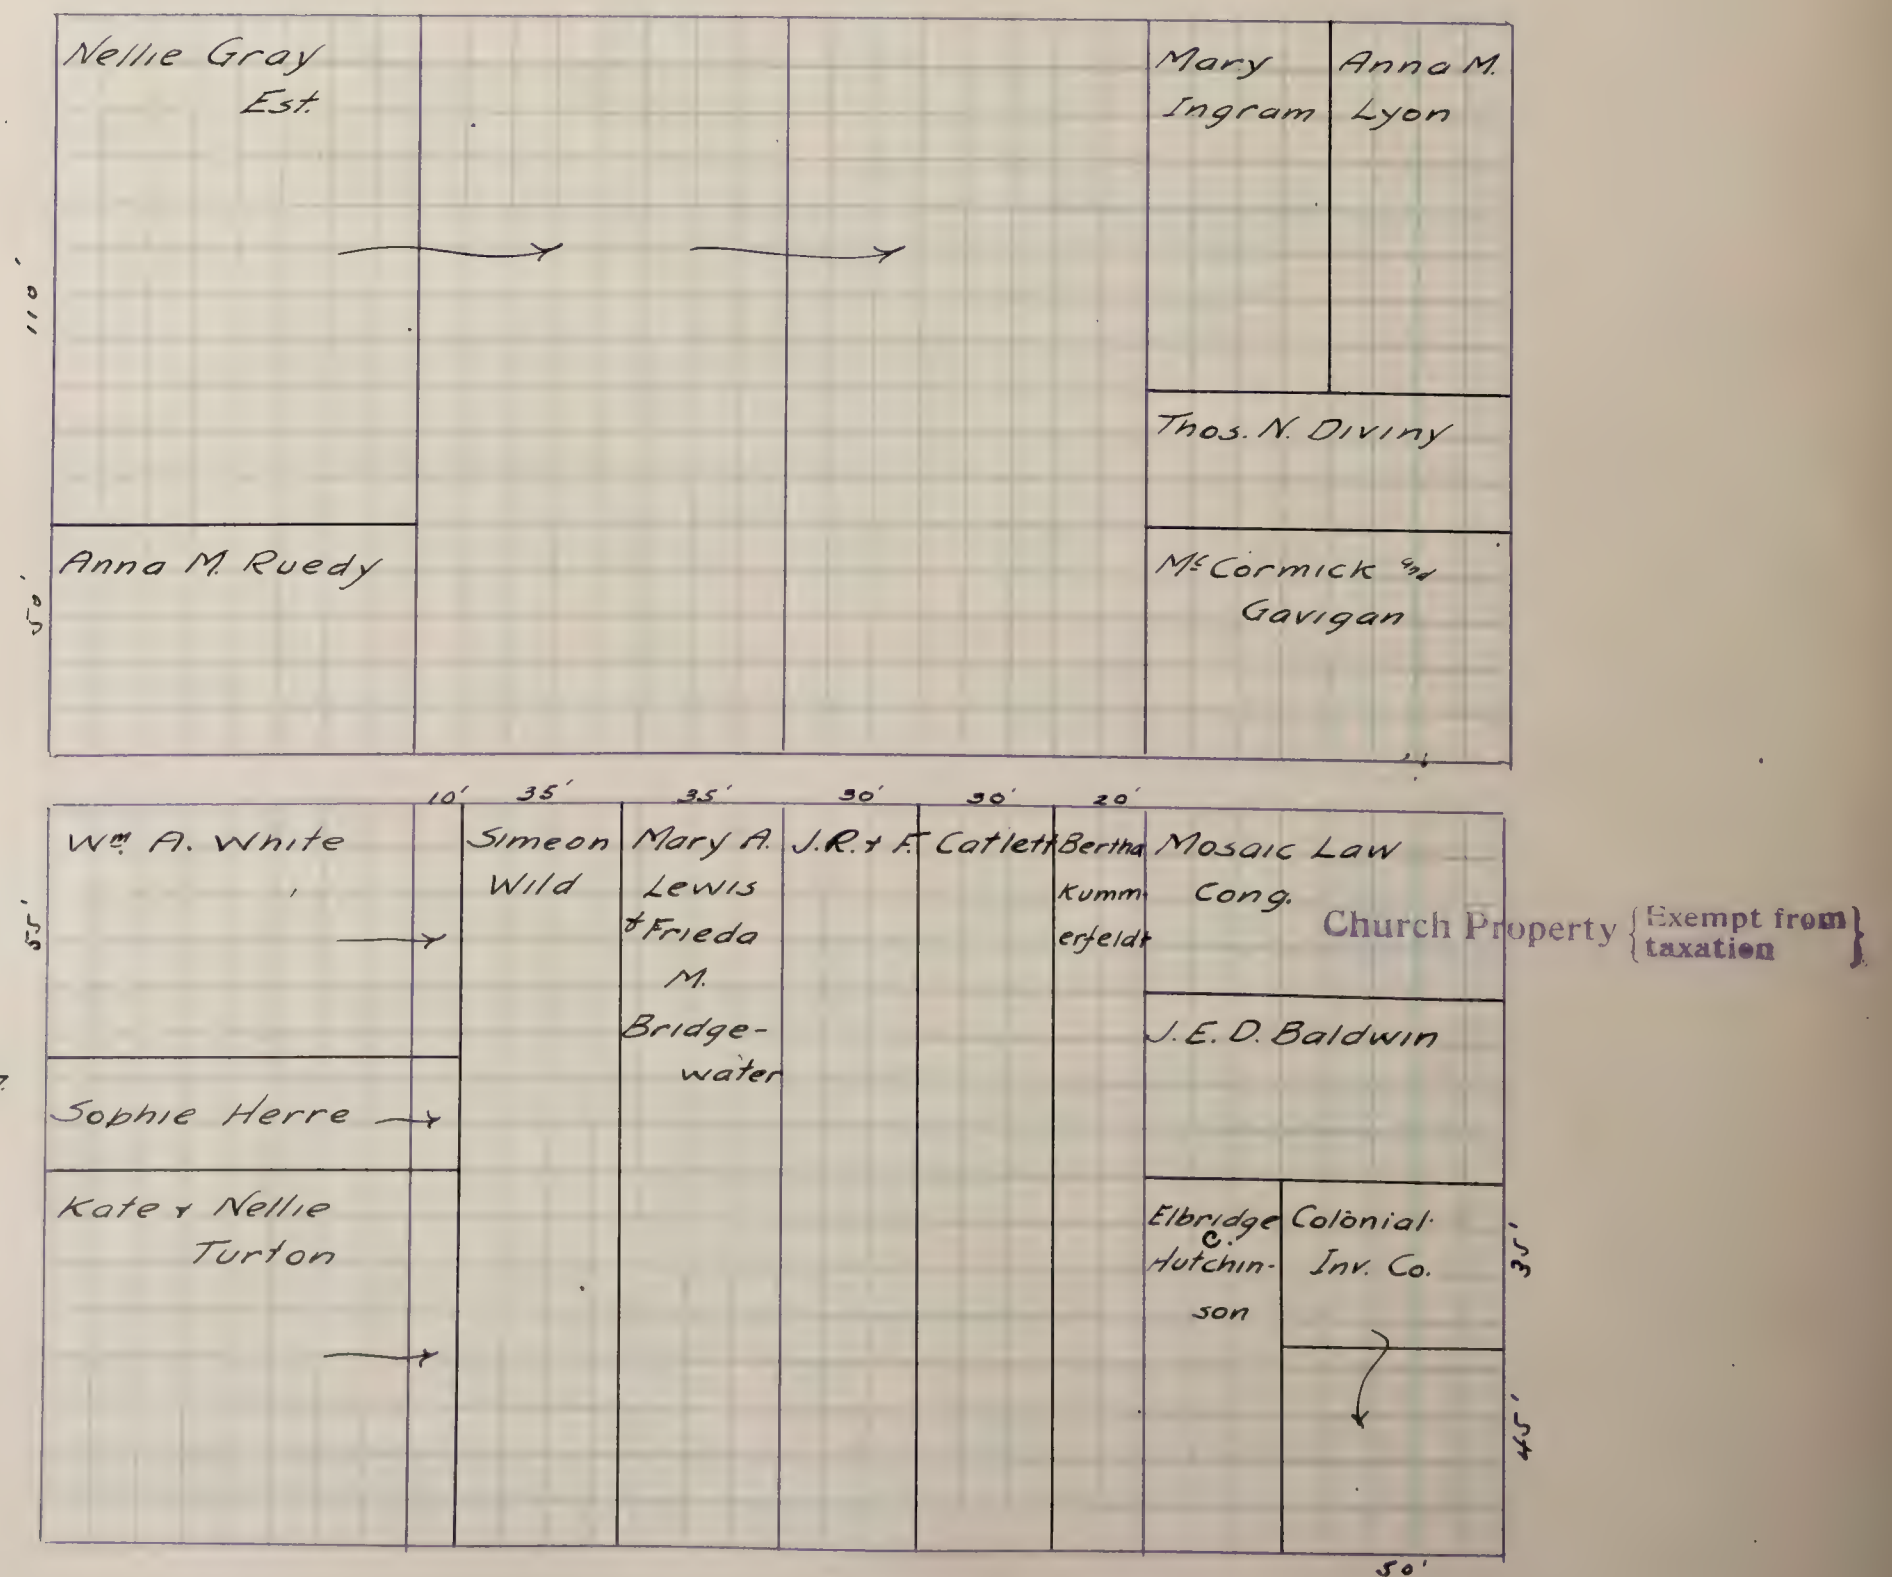 Nellie Gray
Est.
Mary
Ingram
Anna M.
Lyon
110'
Thos. N. Diviny
Anna M. Ruedy
50'
McCormick and
Gavigan
10' 35' 35' 30' 30' 20'
Wm. A. White
55'
Simeon
Wild
Mary A.
Lewis
& Frieda
M.
Bridge-
water
J.R. & F. Catlett
Bertha
Kumm-
erfeldt
Mosaic Law
Cong.
Church Property {Exempt from
taxation}
J. E. D. Baldwin
Sophie Herre
Kate & Nellie
Turton
Elbridge
C.
Hutchin-
son
Colonial
Inv. Co.
35'
45'
50'